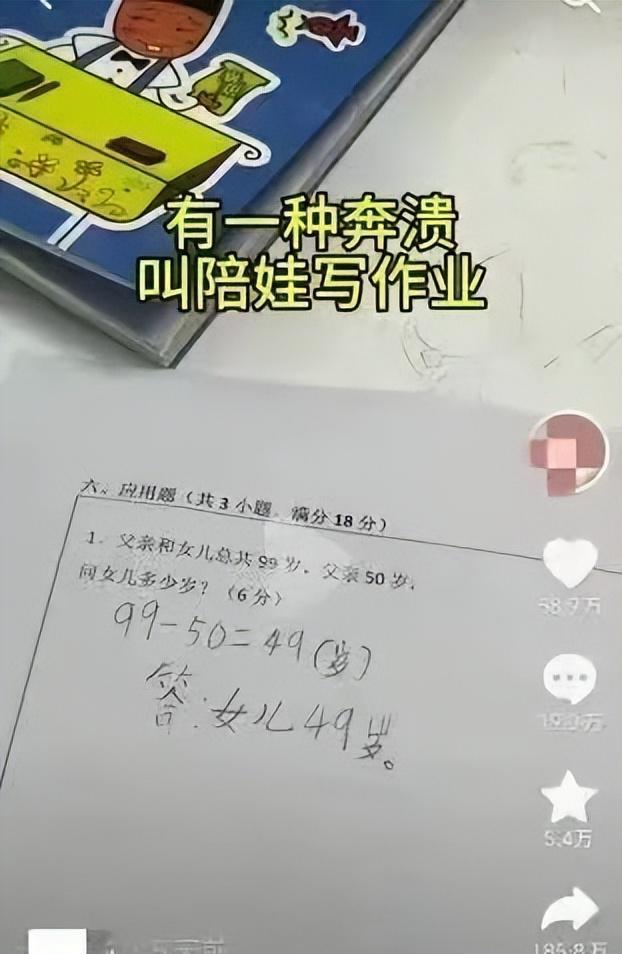 有一种奔溃
叫陪娃写作业
六、应用题（共3小题，满分18分）
1. 父亲和女儿总共99岁，父亲50岁，
问女儿多少岁？（6分）
99-50=49(岁)
答：女儿49岁。
185.8万